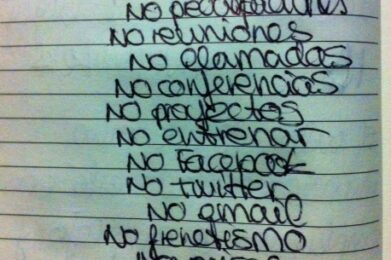 No
No reuniones
No llamadas
No conferencias
No proyectos
No entrenar
No Facebook
No twitter
No gmail
No frenetismo